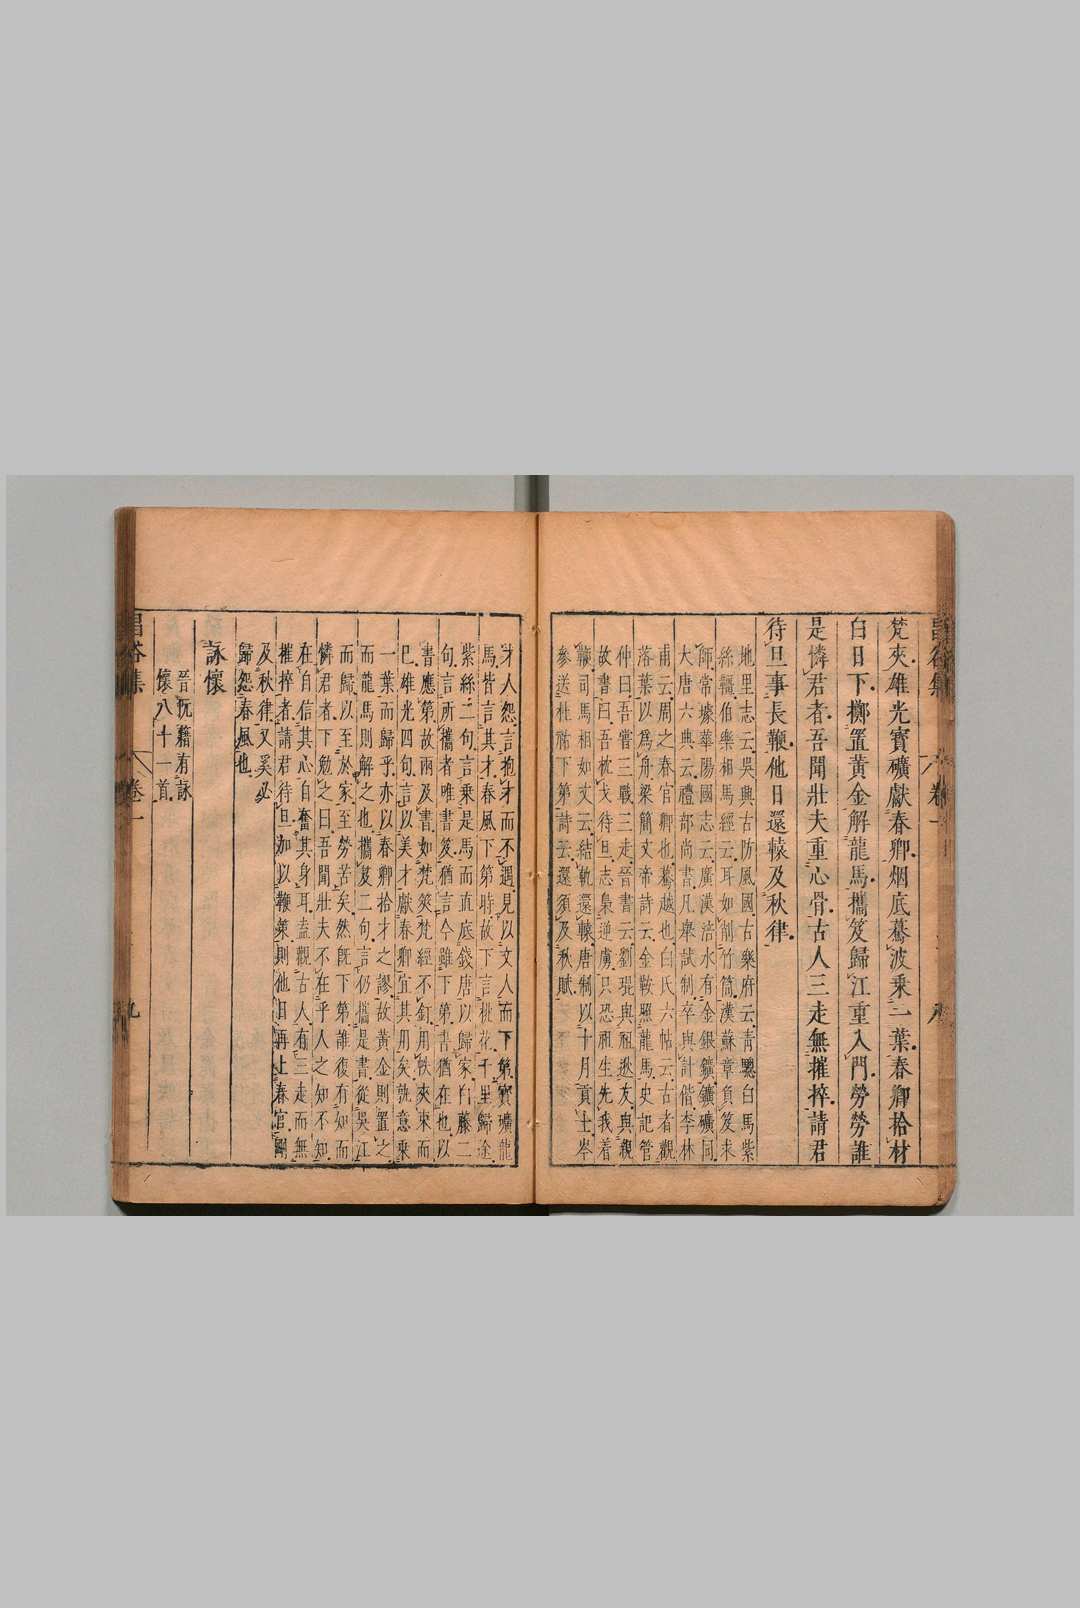 梵夾雄光寶礦獻春卿烟底驀波乘一葉春卿拾材
白日下擲置黃金解龍馬攜笈歸江重入門勞勞誰
是憐君者吾聞壯夫重心骨古人三走無摧捽請君
待旦事長鞭他日還轅及秋律
地里志云吳興古防風國古樂府云青驄白馬紫
絲韁伯樂相馬經云耳如削竹筒漢蘇章負笈求
師常璩華陽國志云廣漢涪水有金銀鑛鑛礦同
大唐六典云禮部尚書凡舉試制卒與計偕李林
甫云周之春官卿也驀越也白氏六帖云古者觀
落葉以爲舟梁簡文帝詩云金鞍照龍馬史記管
仲曰吾嘗三戰三走晉書云劉琨與祖逖友與親
故書曰吾枕戈待旦志梟逆虜只恐祖生先我着
鞭司馬相如文云結軌還轅唐制以十月貢士岑
參送杜佐下第詩云還須及秋賦
才人怨言抱才而不遇見以文人而下第寶礦龍
馬皆言其才春風下第時故下言桃花千里歸途
紫絲二句言乘是馬而直底錢唐以歸家白藤二
句言所攜者唯書書笈猶言今雖下第書猶在也以
書應第故兩及書如梵筴梵經不釘用帙夾束而
巳雄光四句言以美才獻春卿宜其用矣孰意乘
一葉而歸乎亦以春卿拾才之謬故黃金則置之
而龍馬則解之也攜笈二句言仍攜是書從吳江
而歸以至於家至勞苦矣然旣下第誰復有如而
憐君者下勉之曰吾聞壯夫不在乎人之知不知
在自信其心自奮其身耳盍觀古人有三走而無
摧捽者請君待旦加以鞭策則他日再上春官剛
及秋律又奚必
歸怨春風也
詠懷
晉阮籍有詠
懷八十一首
昌谷集
卷一
九